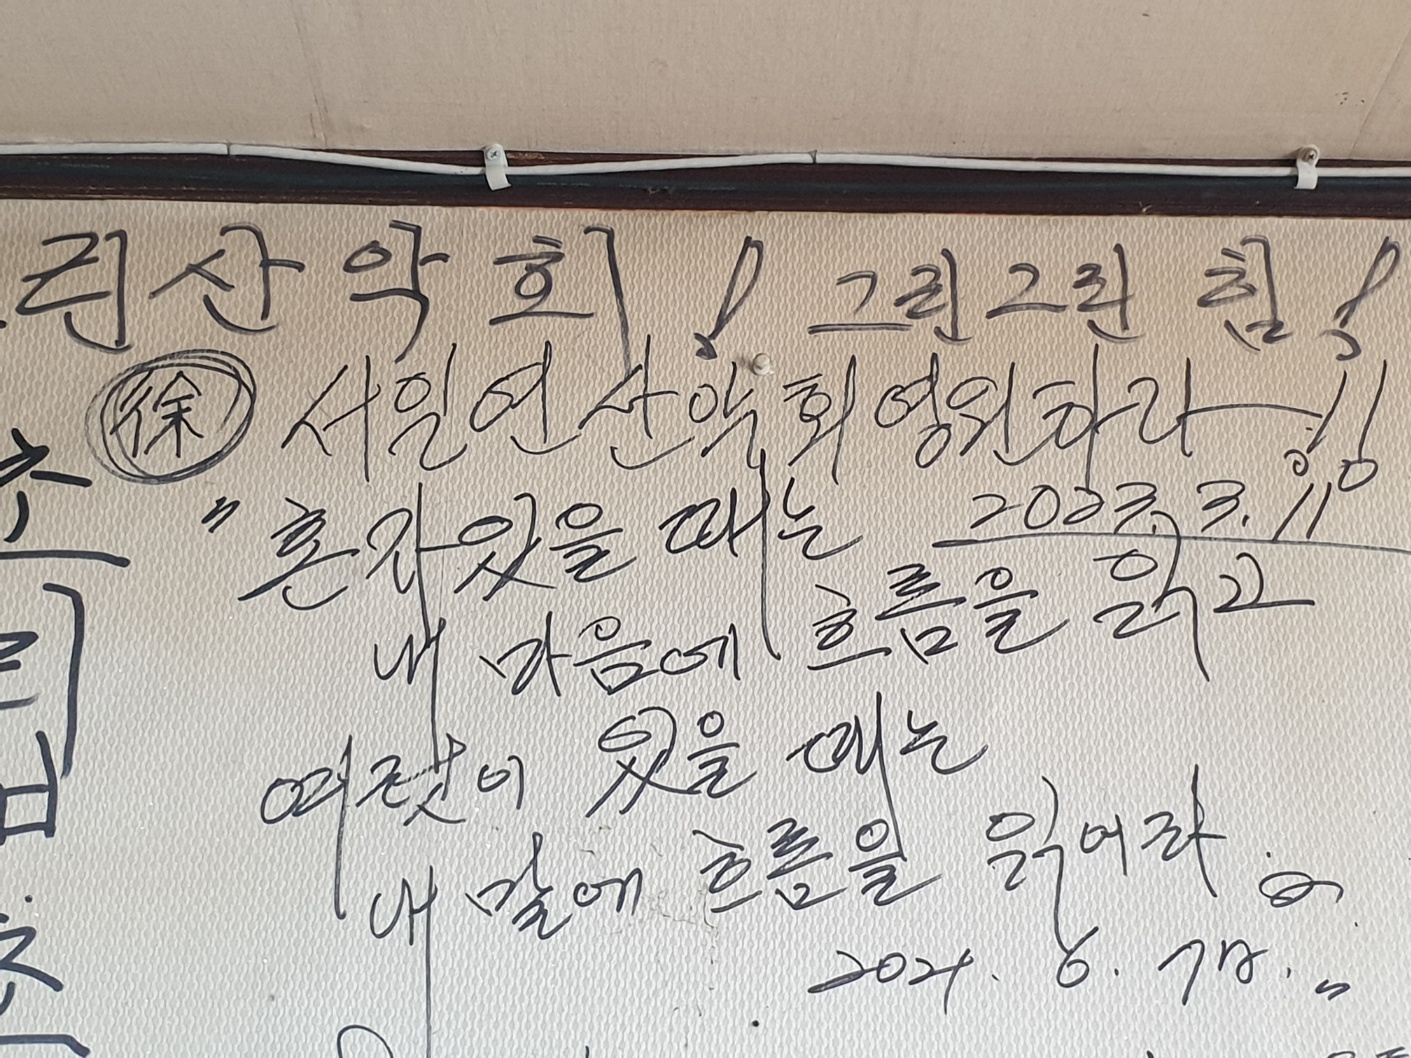 린산악회! 그린그린 힘!
徐 서일연산악회영원하라!!
2023.3.11
"혼자있을 때는
내 마음에 흐름을 읽고
여럿이 있을 때는
내 말에 흐름을 읽어라.
2021. 6. 7